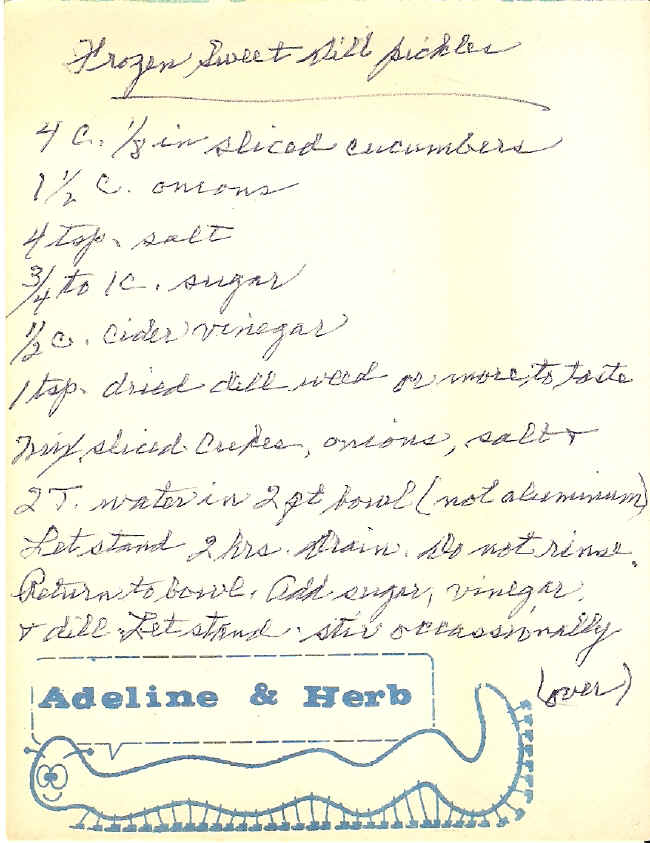 Frozen Sweet Dill pickles
4 C. 1/8 in sliced cucumbers
1 1/2 C. onions
4 tsp. salt
3/4 to 1 C. sugar
1/2 C. cider vinegar
1 tsp. dried dill weed or more, to taste
Mix sliced Cukes, onions, salt &
2 T. water in 2 qt bowl (not aluminum)
Let stand 2 hrs. Drain. Do not rinse.
Return to bowl. Add sugar, vinegar,
& dill. Let stand. stir occassionally
(over)
Adeline & Herb